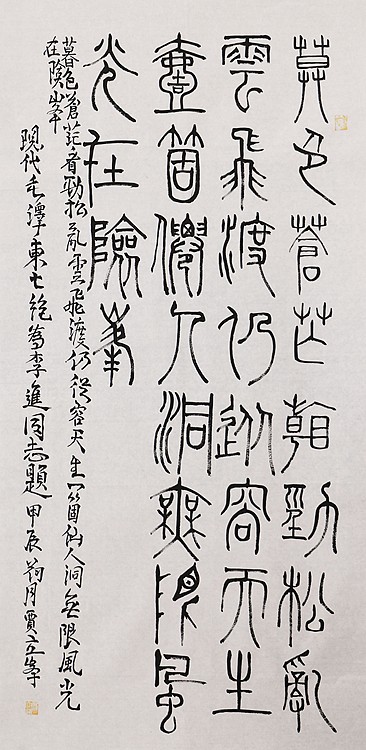 莫色蒼芒看勁松亂
雲飛渡仍從容天生
壹箇僊人洞無限風
光在險峯
暮色蒼茫看勁松亂雲飛渡仍從容天生一箇仙人洞無限風光
在險峰
現代毛澤東七絕為李進同志題 甲辰荷月賈立峯